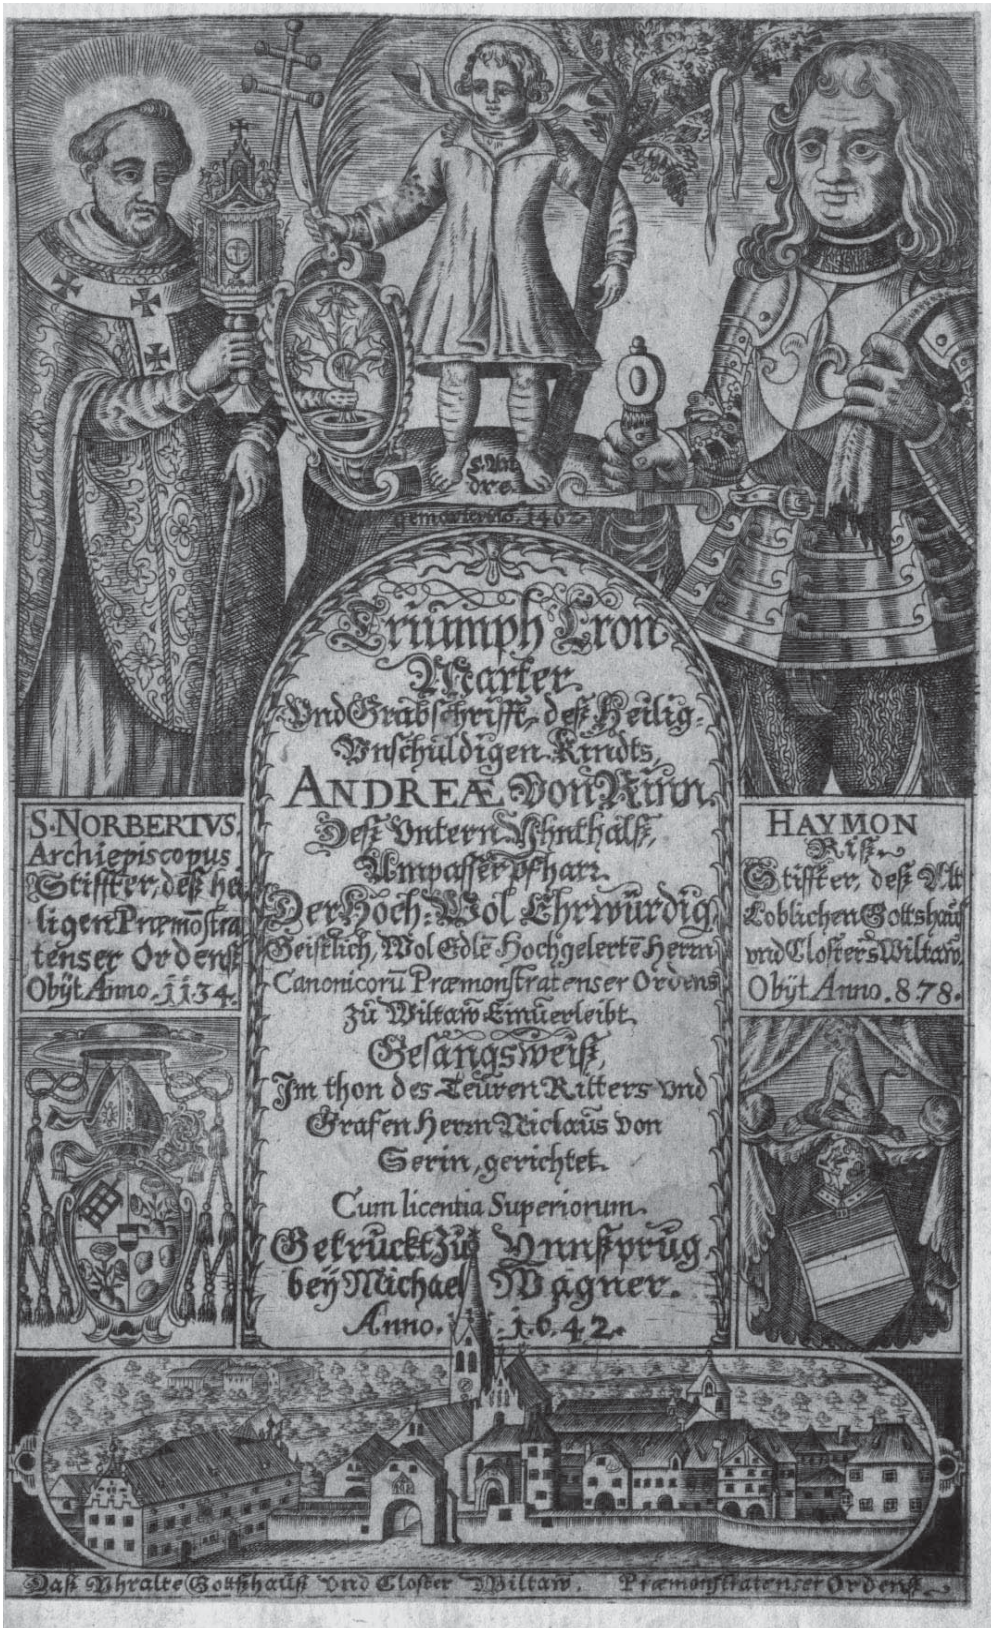 S. An
dre
gemarteret 1462
Triumph Cron
Marter
Vnd Grabschrifft, deß Heilig-
Vnschuldigen Kindts,
ANDREÆ Von Rinn
Deß Vntern Yhnthalß,
Amwasser pfharr.
Der Hoch: Wol Ehrwürdig
Geistlich, Wol Edlē Hochgelertē Herrn
Canonicorū Præmonstratenser Ordens
zu Wiltaw Einuerleibt
Gesangsweiß,
Im thon des Teuren Ritters vnd
Grafen Herrn Niclaus von
Serin, gerichtet.
Cum licentia Superiorum.
Getruckt Zu Ynnßprug
bey Michael Wagner.
Anno. 1.6.4.2.
S. NORBERTVS.
Archiepiscopus
Stiffter, deß hei
ligen Præmōstra
tenser Ordenß
Obijt Anno. 1134.
HAYMON
Riß
Stiffter, deß Alt
Loblichen Gottshauß
vnd Closters Wiltaw.
Obijt Anno. 878.
Daß Vhralte Gottßhauß vnd Closter Wiltaw. Præmonstratenser Ordenß